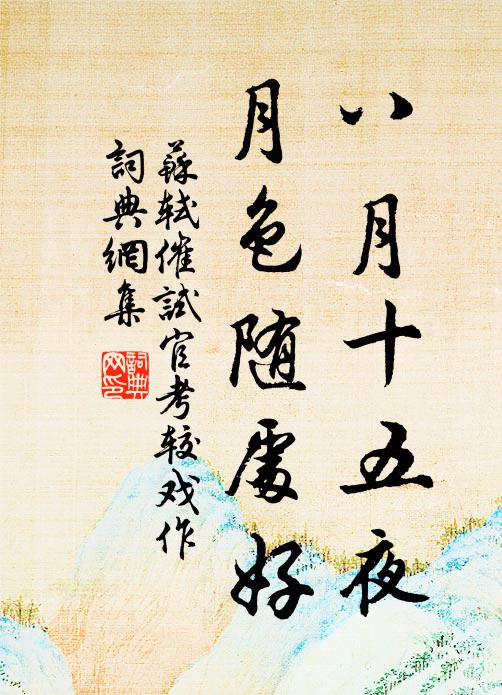 八月十五夜
月色随處好
蘇軾催試官考較戏作
詞典網集
詞典
网印